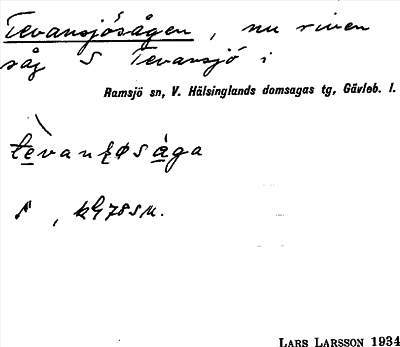 Tevansjösågen, nu riven
såg S Tevansjö i
Ramsjö sn, V. Hälsinglands domsagas tg, Gävleb. l.
LARS LARSSON 1934